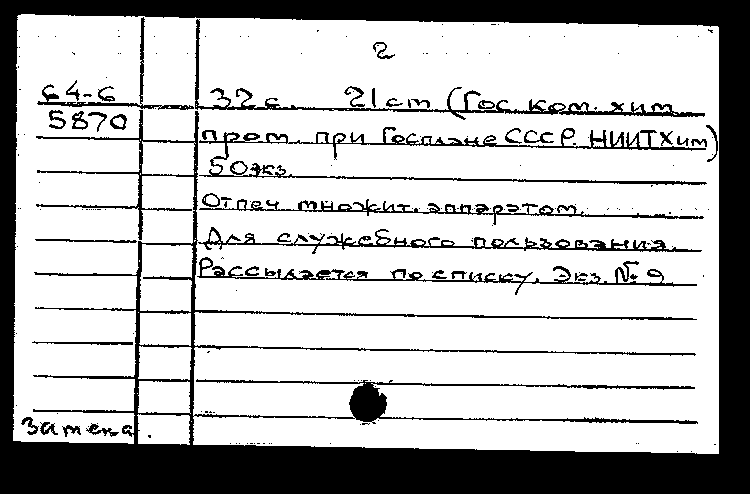 2
64-6
32 с. 21 см (Гос. ком. хим.
5870
пром. при Госплане СССР. НИИТЭХим)
50 экз.
Отпеч. множит. аппаратом.
Для служебного пользования.
Рассылается по списку. Экз. № 9
Замена.